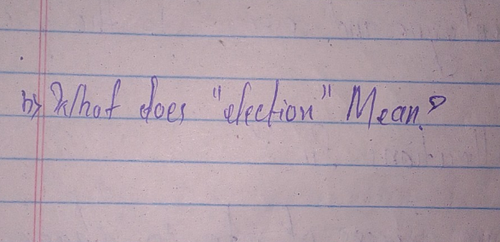 h) What does "election" Mean?